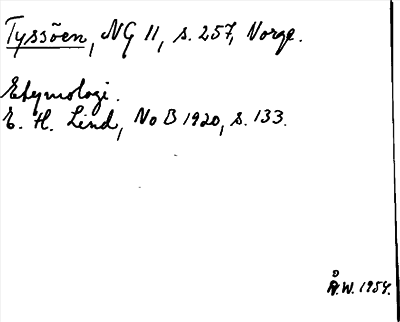 Tyssöen, NG 11, s. 257, Norge.
Etymologi.
E. H. Lind, NoB 1920, s. 133.
Å.W. 1954.